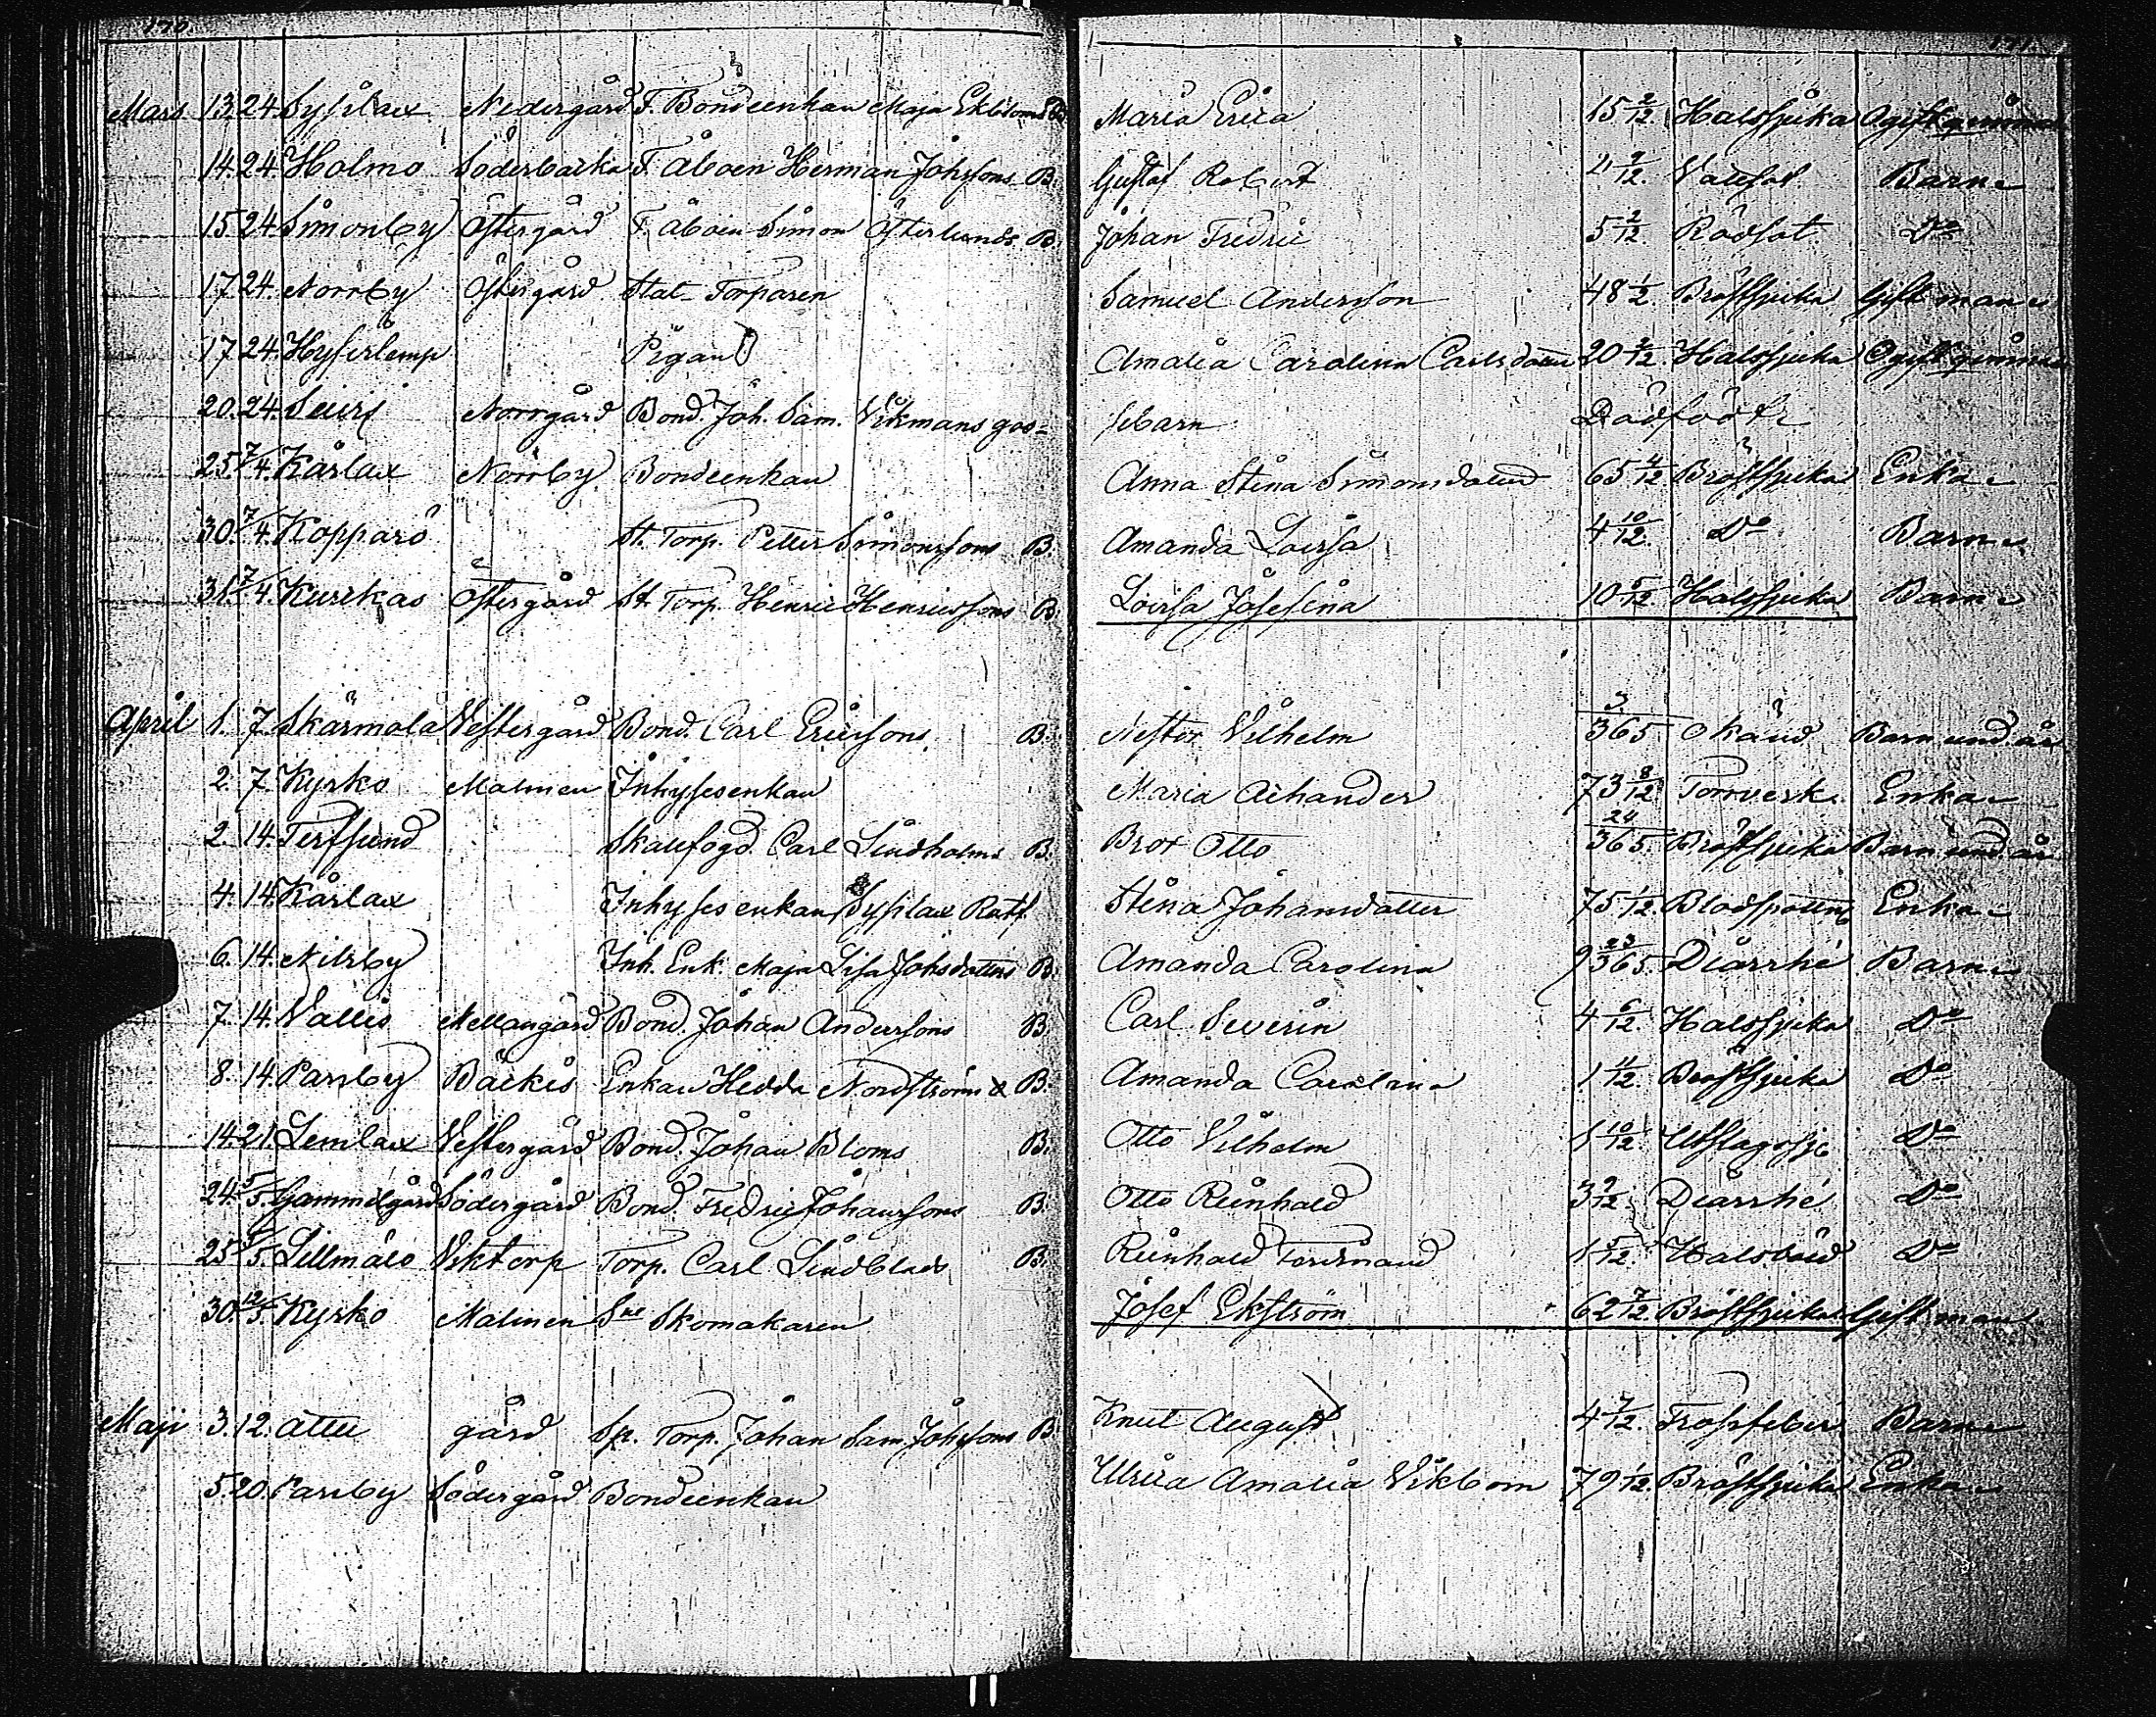 170.
171.
Mars 13. 24. Sysilax Nedergård F. Bondeenkan Maja Ekbloms B. Maria Erica 15 2/12. Halssjuka Ogift qvinna
14. 24. Holmo Söderbacka F. Åboen Herman Johssons B. Gustaf Robert 4 9/12. Vattsot Barn
15. 24. Simonby Östergård F. Åboen Simon Österlunds B. Johan Fredric 5 2/12. Rödsot Do
17. 24. Norrby Östergård Stat Torparen Samuel Andersson 48 1/2. Bröstsjuka Gift man
17. 24. Pigan Amalia Carolina Carlsdotter 20 2/12. Halssjuka Ogift qvinna
20. 24. Norrgård Bond. Joh. Sam. Vikmans gos= sebarn Dödfödt
25. 7/4. Kårlax Norrby Bondeenkan Anna Stina Simonsdotter 65 4/12 Bröstsjuka Enka
30. 7/4. Kopparö St. Torp. Petter Simonssons B. Amanda Lovisa 4 10/12. Do Barn
31. 7/4. Kurckas Östergård St. Torp. Henric Henricssons B. Lovisa Josefina 10 5/12. Halssjuka Barn
April 1. 7. Skärmola Vestergård Bond. Carl Ericssons B. Nestor Vilhelm 3/365 Okänd Barn und. år
2. 7. Kyrko Malmen Inhysesenkan Maria Aihander 73 8/12 Torrverk Enka
2. 14. Terfsund Skallfogd. Carl Lindholms B. Bror Otto 24/365. Bröstsjuka Barn und. år
4. 14. Kårlax Inhysesenkan Sysilax Rotf. Stina Johansdotter 75 1/12. Blodspottn. Enka
6. 14. Nilsby Inh. Enk. Maja Lisa Johsdotters B. Amanda Carolina 9 23/365. Diarrhé Barn
7. 14. Vallis Mellangård Bond. Johan Anderssons B. Carl Severin 4 6/12. Halssjuka Do
8. 14. Parsby Backis Enkan Hedda Nordströms B. Amanda Carolina 1 4/12. Bröstsjuka Do
14. 21. Semlax Vestergård Bond. Johan Bloms B. Otto Vilhelm 1 10/12. Utslagssj. Do
24. 5/5. Gammelgård Södergård Bond. Fredric Johanssons B. Otto Reinhold 3 9/12. Diarrhé Do
25. 5/5. Lillmålo Viktorp Torp. Carl Lindblads B. Reinhold Ferdinand 1 5/12. Halsböld Do
30. 12/5. Kyrko Malmen Sne Skomakaren Josef Ekström 62 7/12. Bröstsjuka Gift man
Maji 3. 12. Attu gård Sp. Torp. Johan Sam. Johssons B. Knut August 4 7/12. Frossfeber Barn
5. 20. Parsby Södergård Bondeenkan Ulrica Amalia Vikbom 79 1/12. Bröstsjuka Enka